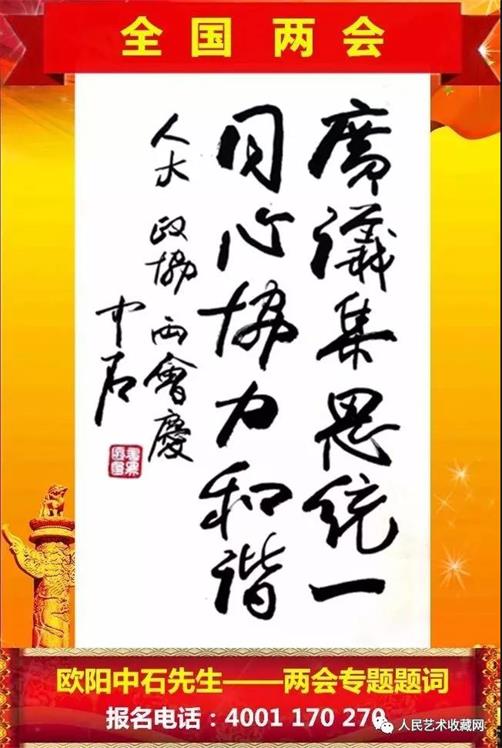 全国 两会
廣議集思统一
同心協力和谐
人大 政協 两會慶
中石
欧阳中石先生——两会专题题词
报名电话：4001 170 270
人民艺术收藏网